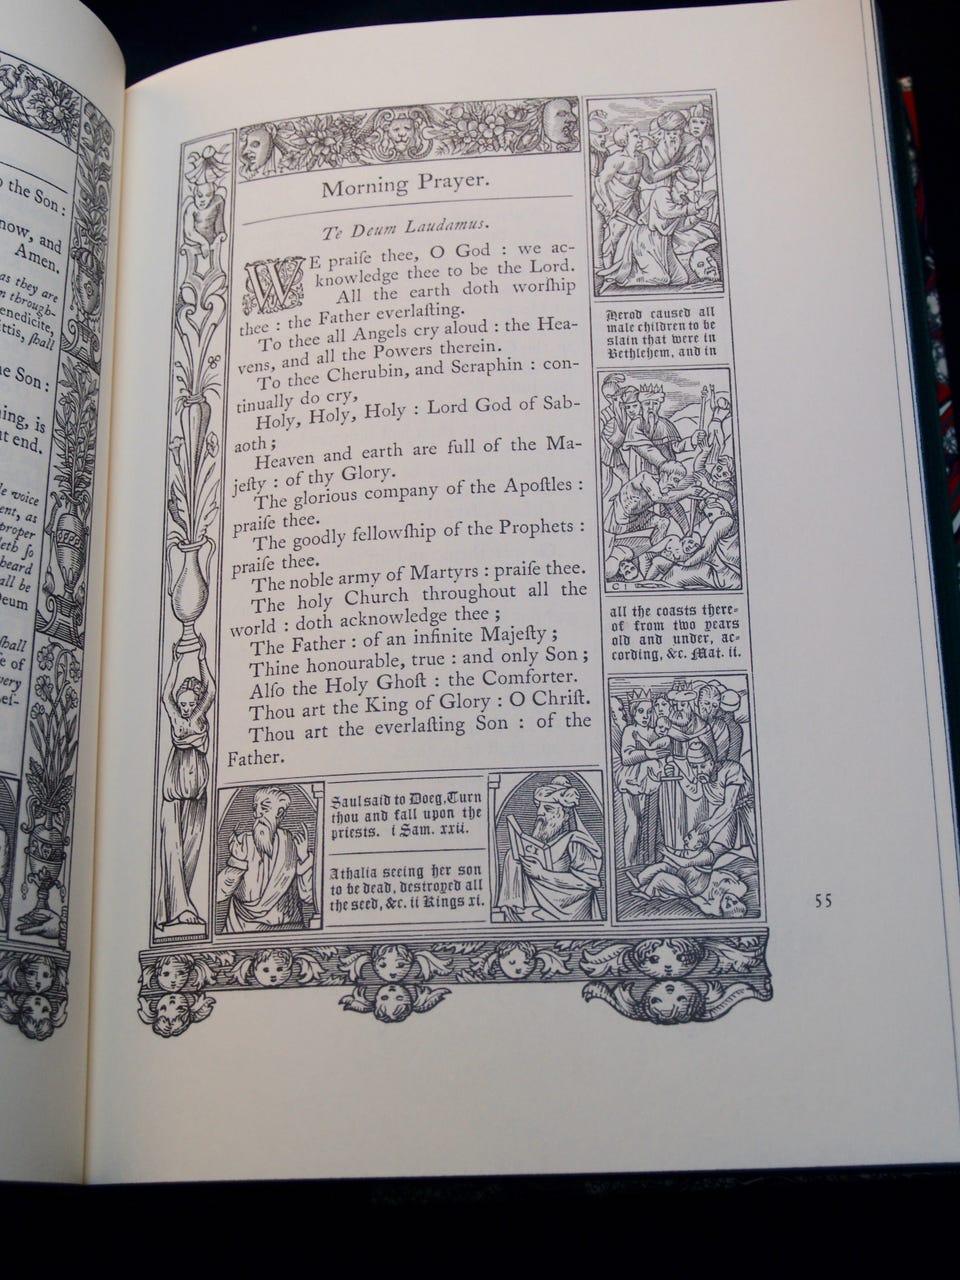 the Son :
now, and
Amen.
as they are
through-
ſhall
Son :
is
end.
voice
as
proper
ſo
heard
be
ſhall
of
very
Morning Prayer.
Te Deum Laudamus.
WE praiſe thee, O God : we ac-
knowledge thee to be the Lord.
All the earth doth worſhip
thee : the Father everlaſting.
To thee all Angels cry aloud : the Hea-
vens, and all the Powers therein.
To thee Cherubin, and Seraphin : con-
tinually do cry,
Holy, Holy, Holy : Lord God of Sab-
aoth ;
Heaven and earth are full of the Ma-
jeſty : of thy Glory.
The glorious company of the Apoſtles :
praiſe thee.
The goodly fellowſhip of the Prophets :
praiſe thee.
The noble army of Martyrs : praiſe thee.
The holy Church throughout all the
world : doth acknowledge thee ;
The Father : of an infinite Majeſty ;
Thine honourable, true : and only Son ;
Alſo the Holy Ghoſt : the Comforter.
Thou art the King of Glory : O Chriſt.
Thou art the everlaſting Son : of the
Father.
Herod caused all
male children to be
slain that were in
Bethlehem, and in
C I
all the coasts there-
of from two years
old and under, ac-
cording, &c. Mat. ii.
Saul said to Doeg, Turn
thou and fall upon the
priests. i Sam. xxii.
Athalia seeing her son
to be dead, destroyed all
the seed, &c. ii Kings xi.
55